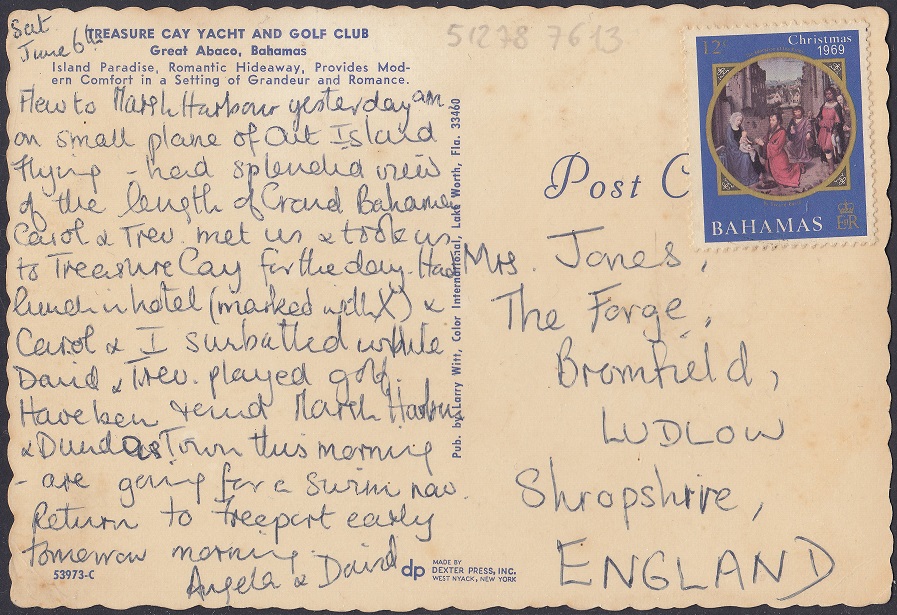 Sat
June 6th
TREASURE CAY YACHT AND GOLF CLUB
Great Abaco, Bahamas
Island Paradise, Romantic Hideaway, Provides Mod-
ern Comfort in a Setting of Grandeur and Romance.
Flew to Marsh Harbour yesterday am
on small plane of Out Island
Flying - had splendid view
of the length of Grand Bahama
Carol & Trev. met us & took us
to Treasure Cay for the day. Had
lunch in hotel (marked with X) &
Carol & I sunbathed while
David & Trev. played golf.
Have been round Marsh Harbour
& Dundas Town this morning
- are going for a swim now.
Return to Freeport early
tomorrow morning.
Angela & David
53973-C
Pub. by Larry Witt, Color International, Lake Worth, Fla. 33460
dp
MADE BY
DEXTER PRESS, INC.
WEST NYACK, NEW YORK
51278 7613
Post C
12c
Christmas
1969
BAHAMAS
EIIR
Mrs. Jones,
The Forge,
Bromfield,
LUDLOW
Shropshire,
ENGLAND